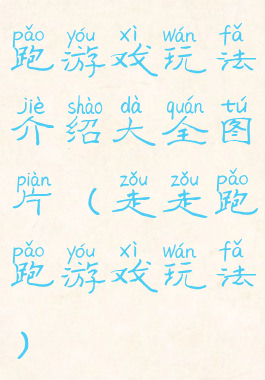 pǎo yóu xì wán fǎ
跑游戏玩法
jiè shào dà quán tú
介绍大全图
piàn zǒu zǒu pǎo
片(走走跑
pǎo yóu xì wán fǎ
跑游戏玩法
)